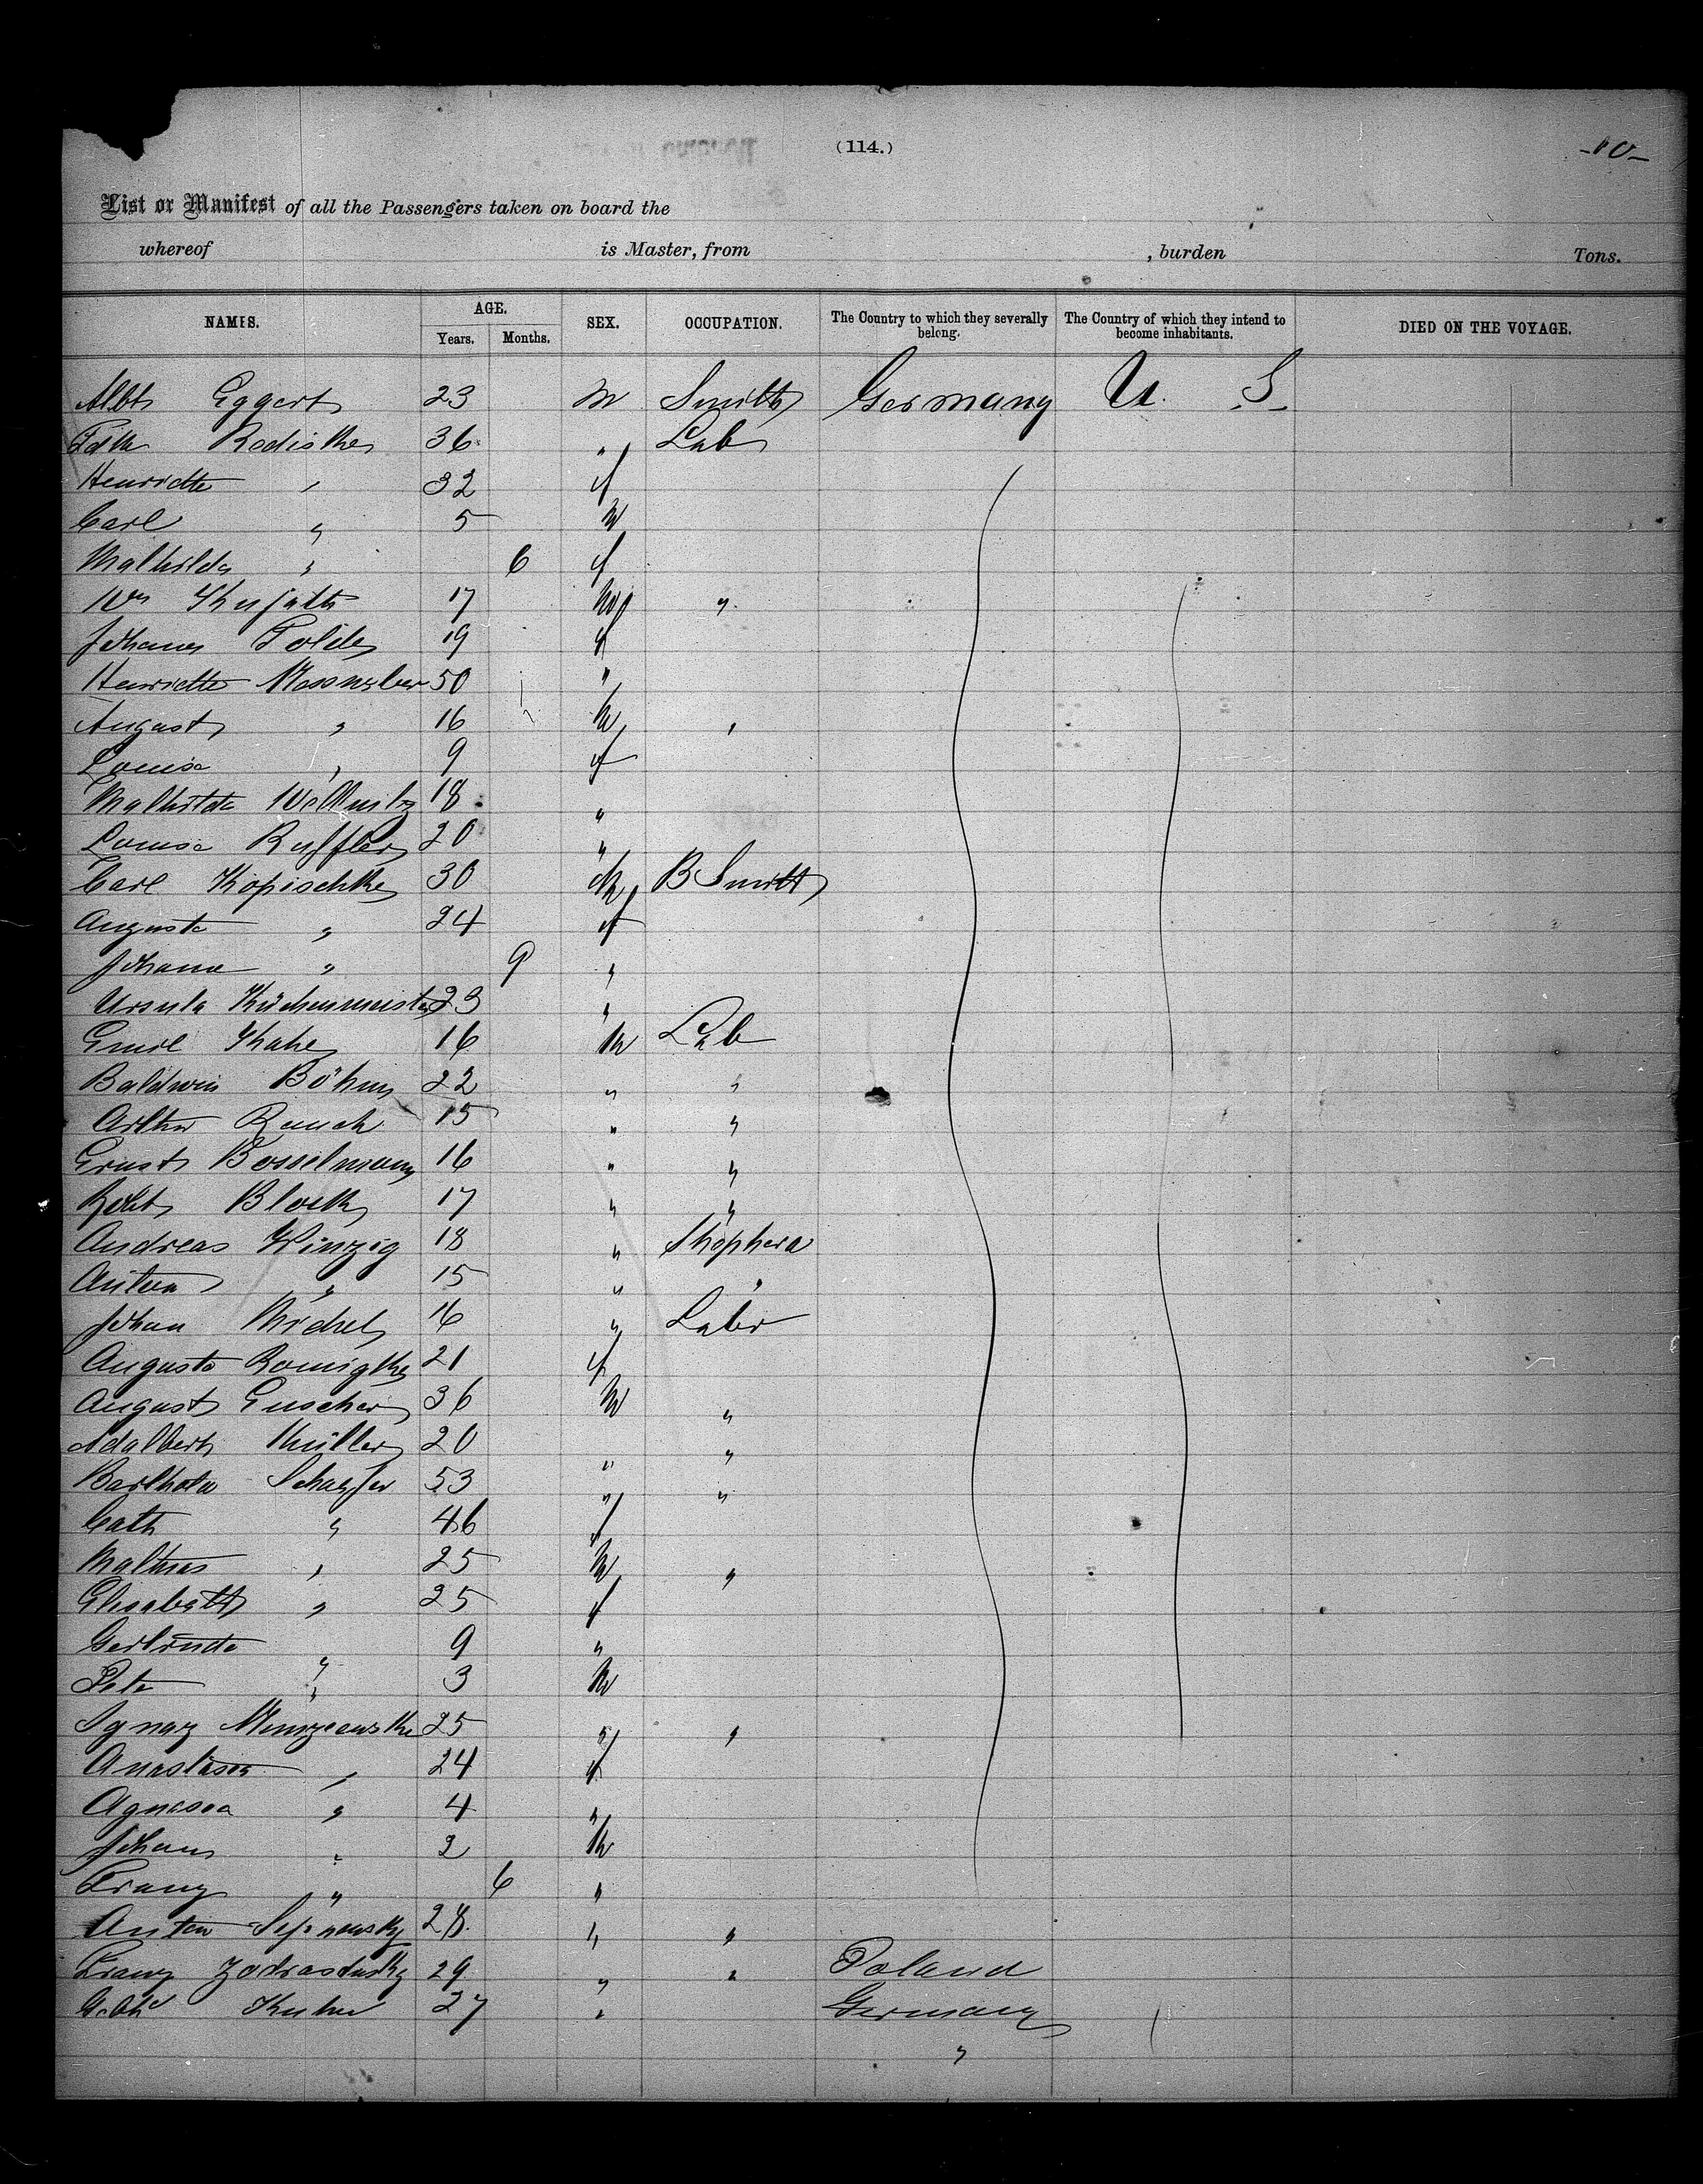 (114.)
-10-
List or Manifest of all the Passengers taken on board the
whereof is Master, from , burden Tons.
NAMES. AGE. Years. Months. SEX. OCCUPATION. The Country to which they severally belong. The Country of which they intend to become inhabitants. DIED ON THE VOYAGE.
Albt Eggert 23 m Smith Germany U. S.
Radistke 36 " Lab
Henriette " 32 f
Carl " 5 M
Mathilda " 6 f
Wm 17 M "
19 f
Henriette 50 "
August " 16 M "
Louisa " 9 f
Mathilda 18 "
Louisa Ruffler 20 "
Carl Kopischke 30 M B Smith
Auguste " 24 f
Johana " 9 "
Ursula Küchenmeister 23 "
Emil 16 M Lab
Baldwin Böhm 22 " "
Arthur Rauch 15 " "
Ernst Bosselmann 16 " "
Robt Block 17 " "
Andreas Winzig 18 "
Anton " 15 " "
Johan Michel 16 " Labr
Auguste 21 f
August 36 M "
Adalbert Müller 20 " "
Barthola Schaefer 53 " "
Cath " 46 f
Mathias " 25 M "
Elisabeth " 25 f
Gertrude " 9 "
Peter " 3 M
Ignaz 25 " "
Anastasia " 24 f
" 4 "
Johan " 2 M
Franz " 6 "
Anton 28 " "
Franz 29 " " Poland
Kuhn 27 " Germany
"